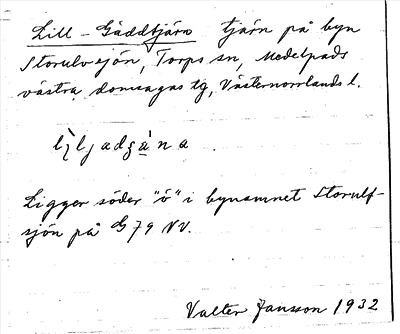 Lill-Gäddtjärn tjärn på byn
Storulvsjön, Torps sn, Medelpads
västra domsagas tg, Västernorrlands l.
Ligger söder "ö" i bynamnet Storulf-
sjön på G 79 NV.
Valter Jansson 1932